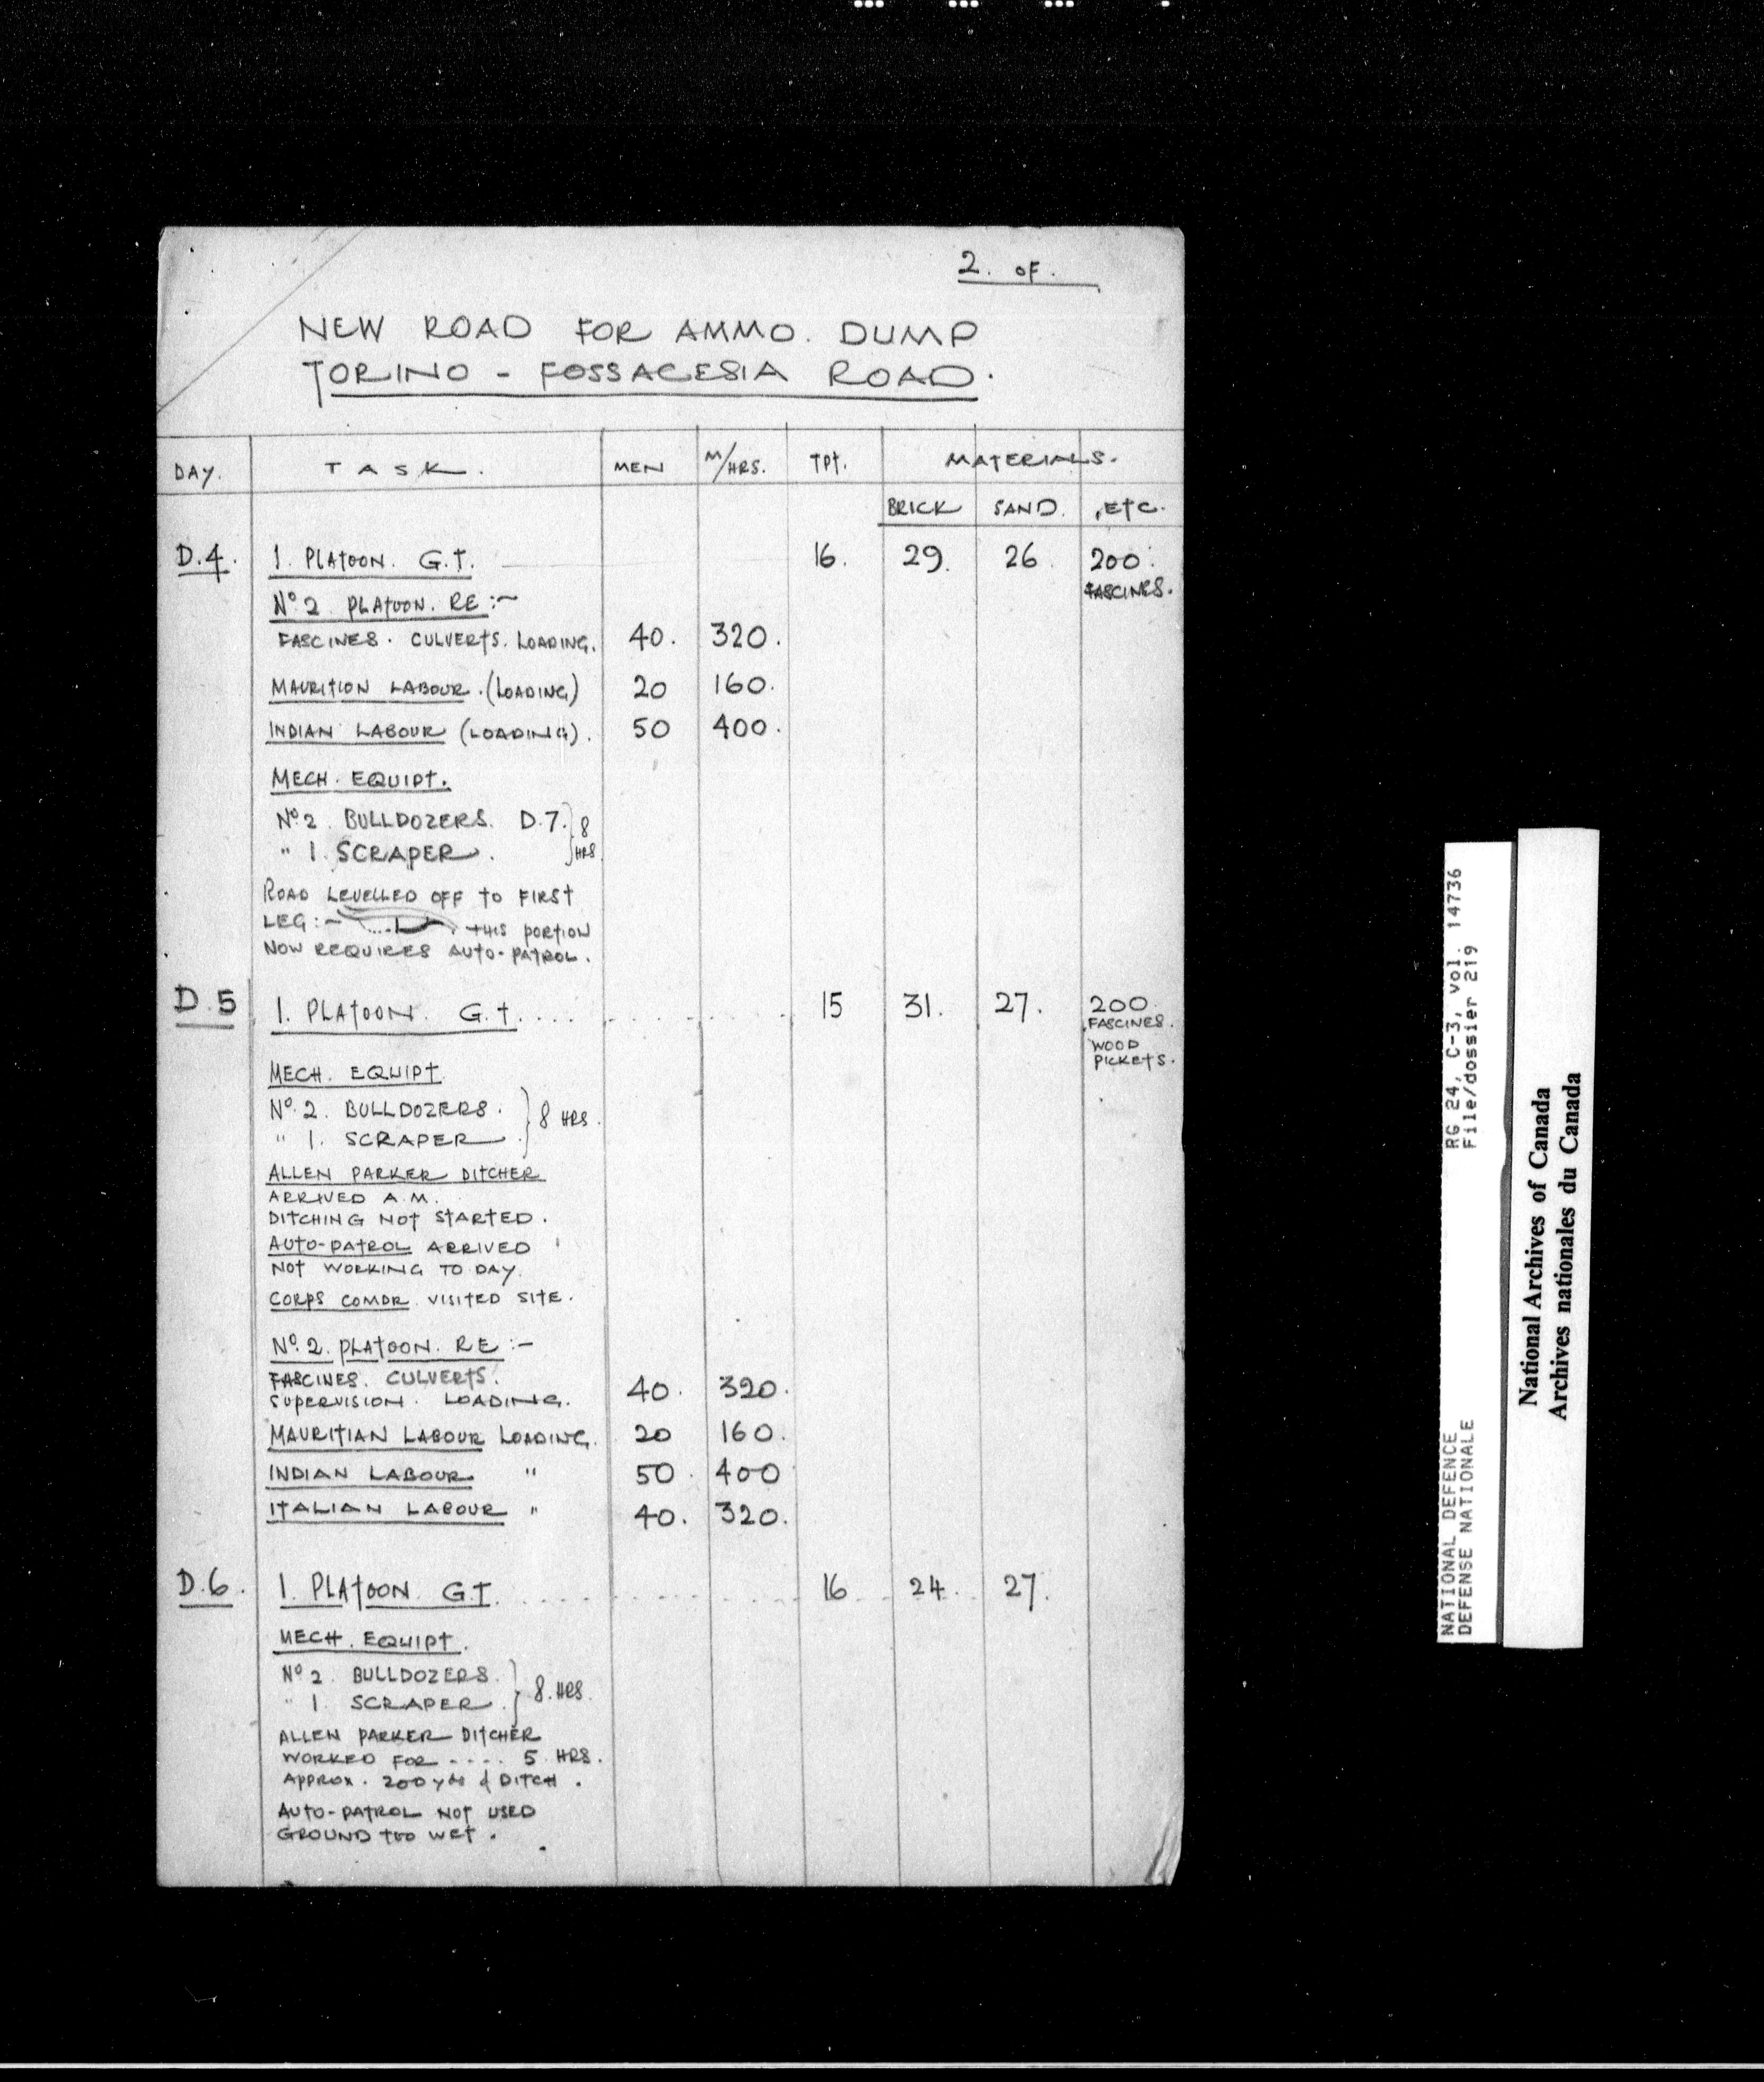 2. OF.
NEW ROAD FOR AMMO. DUMP
TORINO - FOSSACESIA ROAD.
DAY. TASK. MEN M/HRS. TPT. MATERIALS.
BRICK SAND. ,ETC.
D.4. 1. PLATOON. G.T. 16. 29. 26. 200.
FASCINES.
Nº 2 PLATOON. RE :-
FASCINES. CULVERTS. LOADING. 40. 320.
MAURITION LABOUR. (LOADING) 20 160.
INDIAN LABOUR (LOADING). 50 400.
MECH. EQUIPT.
Nº 2. BULLDOZERS. D.7. } 8
" 1. SCRAPER. HRS.
ROAD LEVELLED OFF TO FIRST
LEG :- THIS PORTION
NOW REQUIRES AUTO-PATROL.
D.5 1. PLATOON. G.T. .... 15 31. 27. 200.
FASCINES.
WOOD
PICKETS.
MECH. EQUIPT
Nº. 2. BULLDOZERS. } 8 HRS.
" 1. SCRAPER.
ALLEN PARKER DITCHER
ARRIVED A.M.
DITCHING NOT STARTED.
AUTO-PATROL ARRIVED
NOT WORKING TO DAY.
CORPS COMDR. VISITED SITE.
Nº. 2. PLATOON. RE :-
FASCINES. CULVERTS.
SUPERVISION. LOADING. 40. 320.
MAURITIAN LABOUR LOADING. 20 160.
INDIAN LABOUR " 50. 400
ITALIAN LABOUR " 40. 320.
D.6. 1. PLATOON G.T. .... 16 24. 27.
MECH. EQUIPT.
Nº 2. BULLDOZERS. } 8. HRS.
" 1. SCRAPER.
ALLEN PARKER DITCHER
WORKED FOR .... 5 HRS.
APPROX. 200 yds of DITCH.
AUTO-PATROL NOT USED
GROUND TOO WET.
NATIONAL DEFENCE RG 24, C-3, vol. 14736
DEFENSE NATIONALE File/dossier 219
National Archives of Canada
Archives nationales du Canada